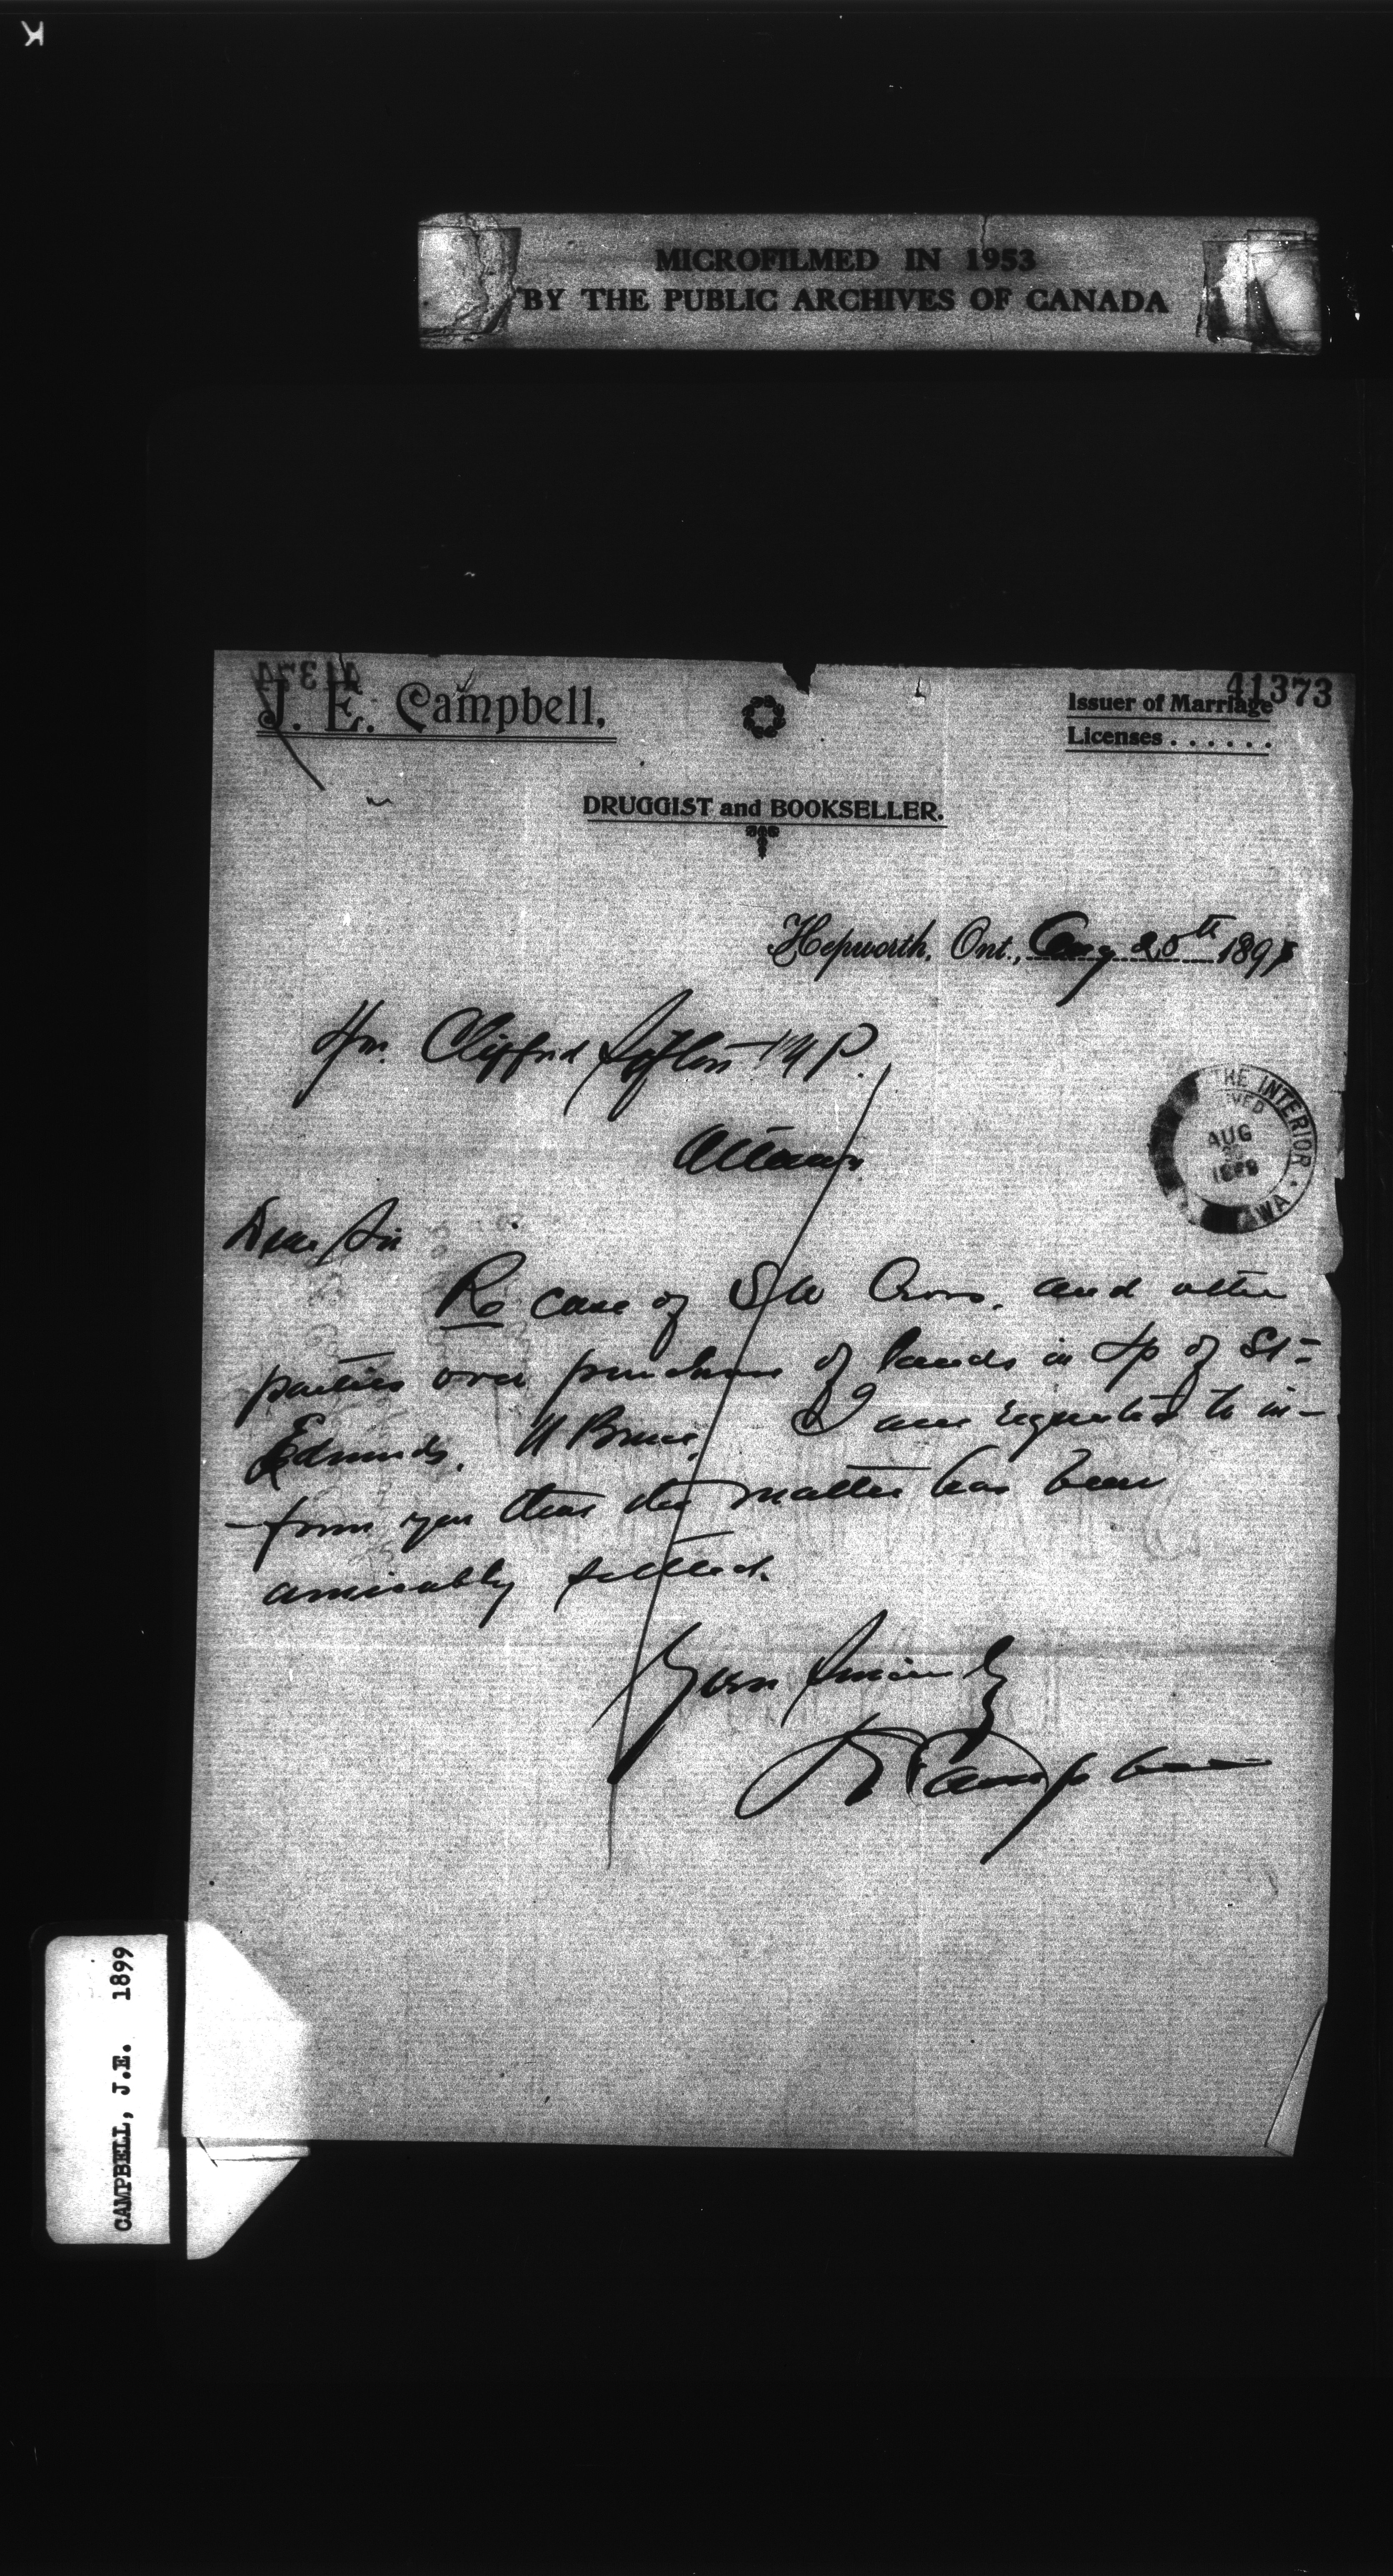 MICROFILMED IN 1953
BY THE PUBLIC ARCHIVES OF CANADA
41373
J. E. Campbell,
Issuer of Marriage
Licenses . . . . . .
DRUGGIST and BOOKSELLER.
Hepworth, Ont., Aug 25th 189
Hon. Clifford Sifton M P.
Ottawa
THE INTERIOR
AUG
1899
Dear Sir
Re case of S W Cross. and other
parties over purchase of lands in Tp of St=
Edmunds. N Bruce, I am requested to in-
-form you that the matter has been
amicably settled.
Yours Sincerely
J E Campbell
CAMPBELL, J.E. 1899